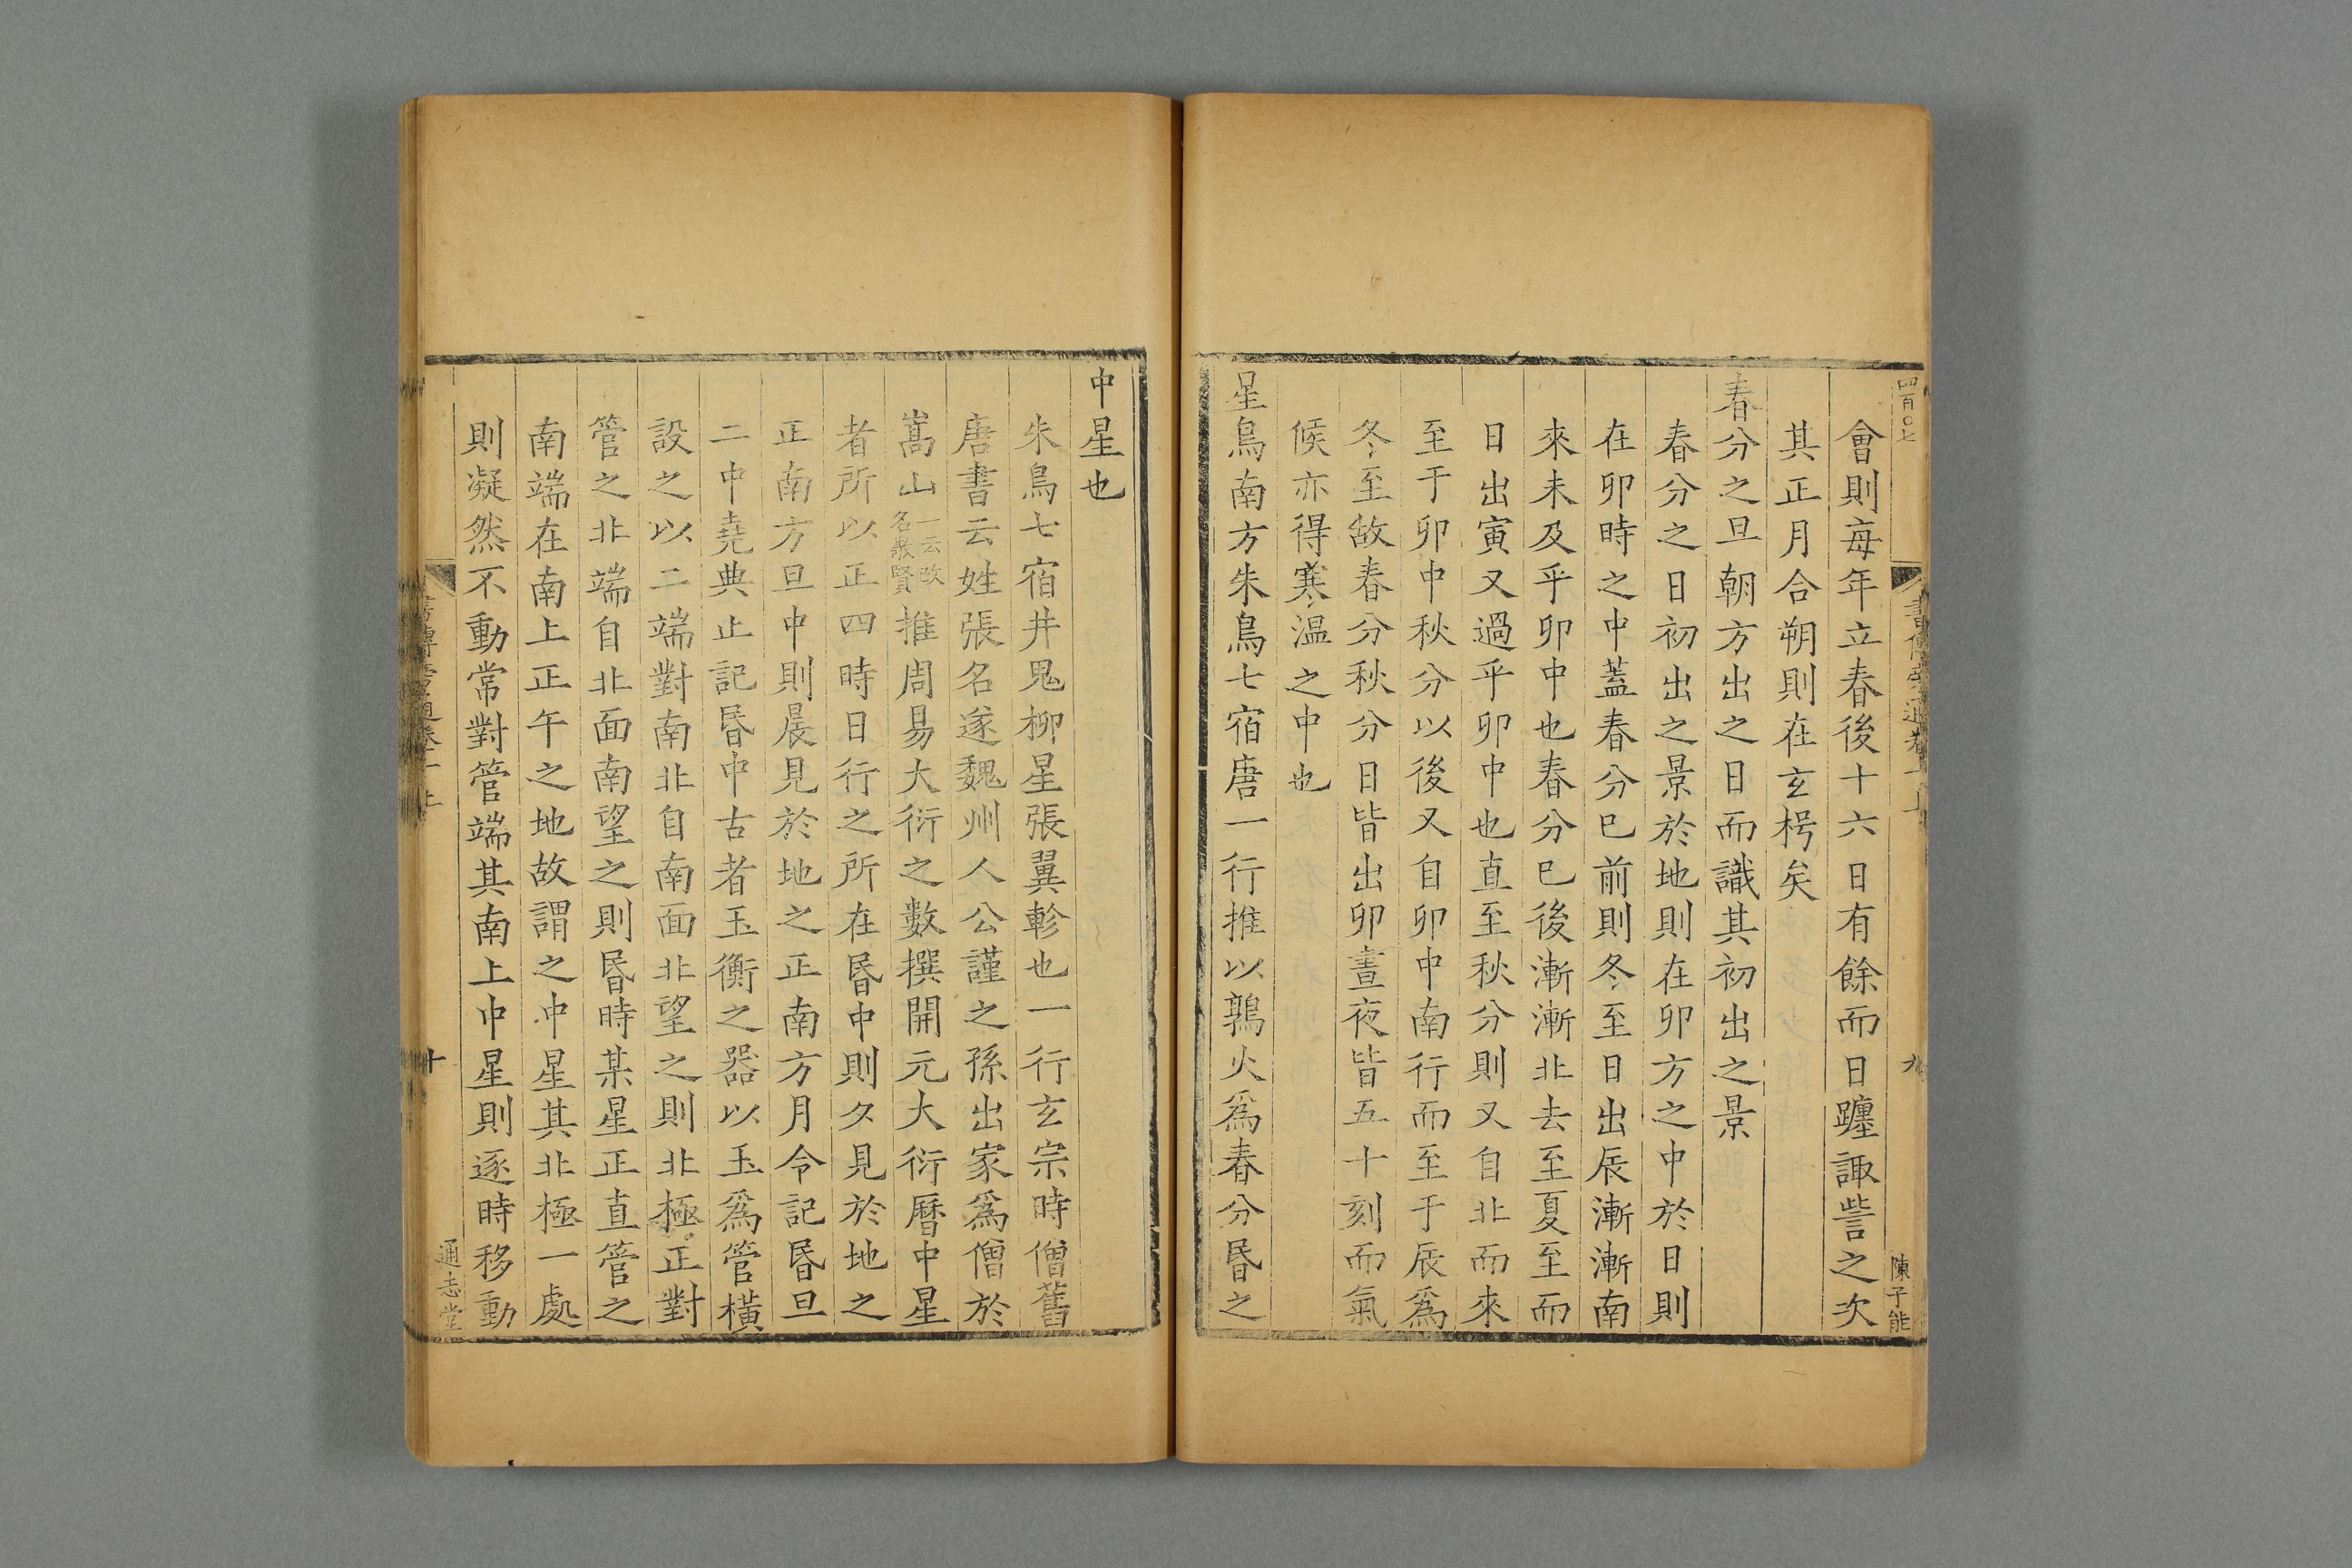 四百〇七
陳子能
會則每年立春後十六日有餘而日躔諏訾之次
其正月合朔則在玄枵矣
春分之旦朝方出之日而識其初出之景
春分之日初出之景於地則在卯方之中於日則
在卯時之中蓋春分已前則冬至日出辰漸漸南
來未及乎卯中也春分已後漸漸北去至夏至而
日出寅又過乎卯中也直至秋分則又自北而來
至于卯中秋分以後又自卯中南行而至于辰爲
冬至故春分秋分日皆出卯晝夜皆五十刻而氣
候亦得寒溫之中也
星鳥南方朱鳥七宿唐一行推以鶉火爲春分昏之
中星也
朱鳥七宿井鬼柳星張翼軫也一行玄宗時僧舊
唐書云姓張名遂魏州人公謹之孫出家爲僧於
嵩山一云改名敬賢推周易大衍之數撰開元大衍曆中星
者所以正四時日行之所在昏中則夕見於地之
正南方旦中則晨見於地之正南方月令記昏旦
二中堯典止記昏中古者玉衡之器以玉爲管橫
設之以二端對南北自南面北望之則北極正對
管之北端自北面南望之則昏時某星正直管之
南端在南上正午之地故謂之中星其北極一處
則凝然不動常對管端其南上中星則逐時移動
十
通志堂